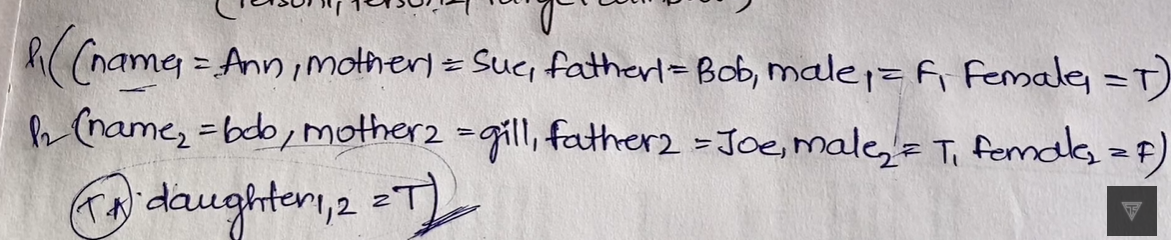 (Person1, Person2, Target
P1((name1 = Ann, mother1 = Sue, father1 = Bob, male1 = F, Female1 = T)
P2 (name2 = bob, mother2 = gill, father2 = Joe, male2 = T, female2 = F)
daughter1,2 = T)